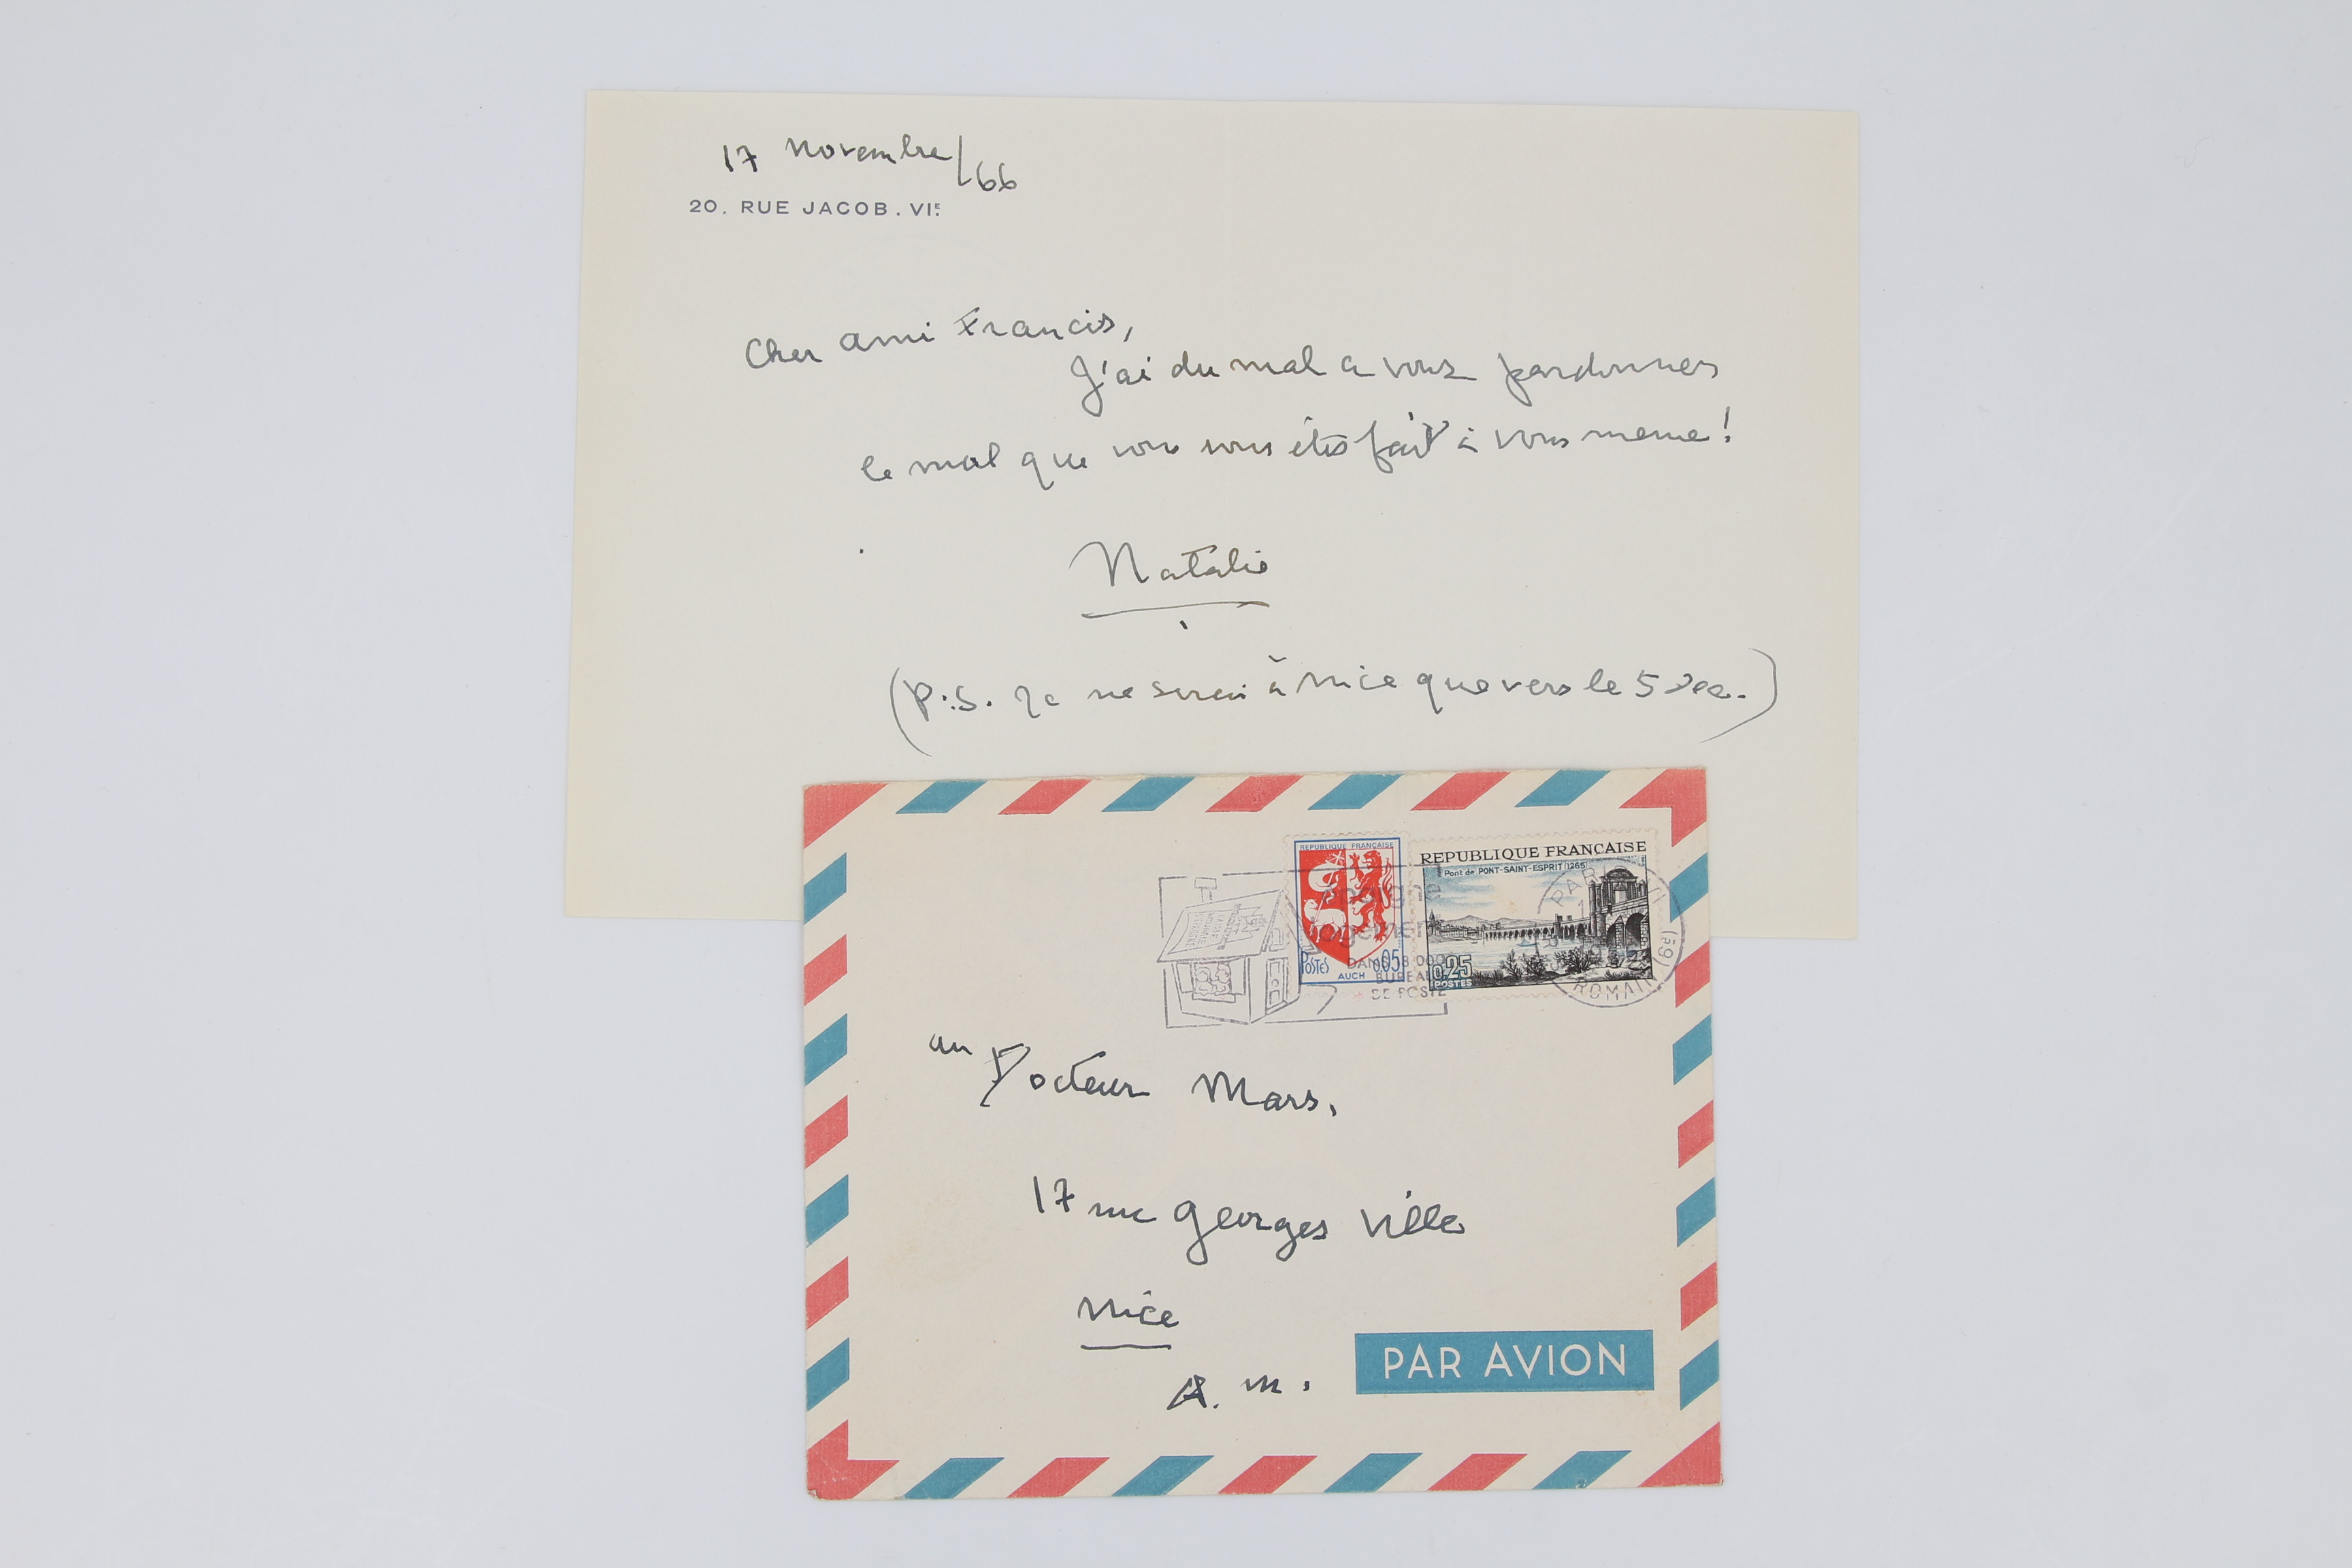 17 Novembre/66
20, RUE JACOB. VIE
Cher ami Francis,
J'ai du mal a vous pardonner
le mal que vous vous êtes fait à vous meme!
Natalie
(P.S. Je ne serai à Nice que vers le 5 Dec.)
REPUBLIQUE FRANÇAISE
POSTES
0,05
AUCH
REPUBLIQUE FRANÇAISE
Pont de PONT-SAINT-ESPRIT (1265)
0,25
POSTES
DANS 18 000
BUREAUX
DE POSTE
au Docteur Mars,
17 rue Georges Ville
Nice
A. M.
PAR AVION